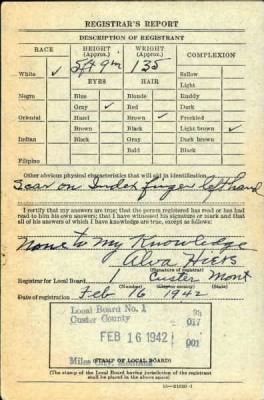 REGISTRAR'S REPORT
DESCRIPTION OF REGISTRANT
RACE HEIGHT (Approx.) WEIGHT (Approx.) COMPLEXION
5 ft 9 in 135
White ✓ EYES HAIR Sallow
Light
Negro Blue Blonde Ruddy
Gray ✓ Red Dark
Oriental Hazel Brown ✓ Freckled
Brown Black Light brown ✓
Indian Black Gray Dark brown
Bald Black
Filipino
Other obvious physical characteristics that will aid in identification
Scar on Index finger left hand
I certify that my answers are true; that the person registered has read or has
had read to him his own answers; that I have witnessed his signature or mark and that
all of his answers of which I have knowledge are true, except as follows:
None to My Knowledge
Alva Hiers
(Signature of registrar)
Registrar for Local Board 1 Custer Mont
(Number) (City or county) (State)
Date of registration Feb 16 1942
Local Board No. 1 95
Custer County 017
FEB 16 1942
001
Miles City, Montana
(STAMP OF LOCAL BOARD)
(The stamp of the Local Board having jurisdiction of the registrant
shall be placed in the above space.)